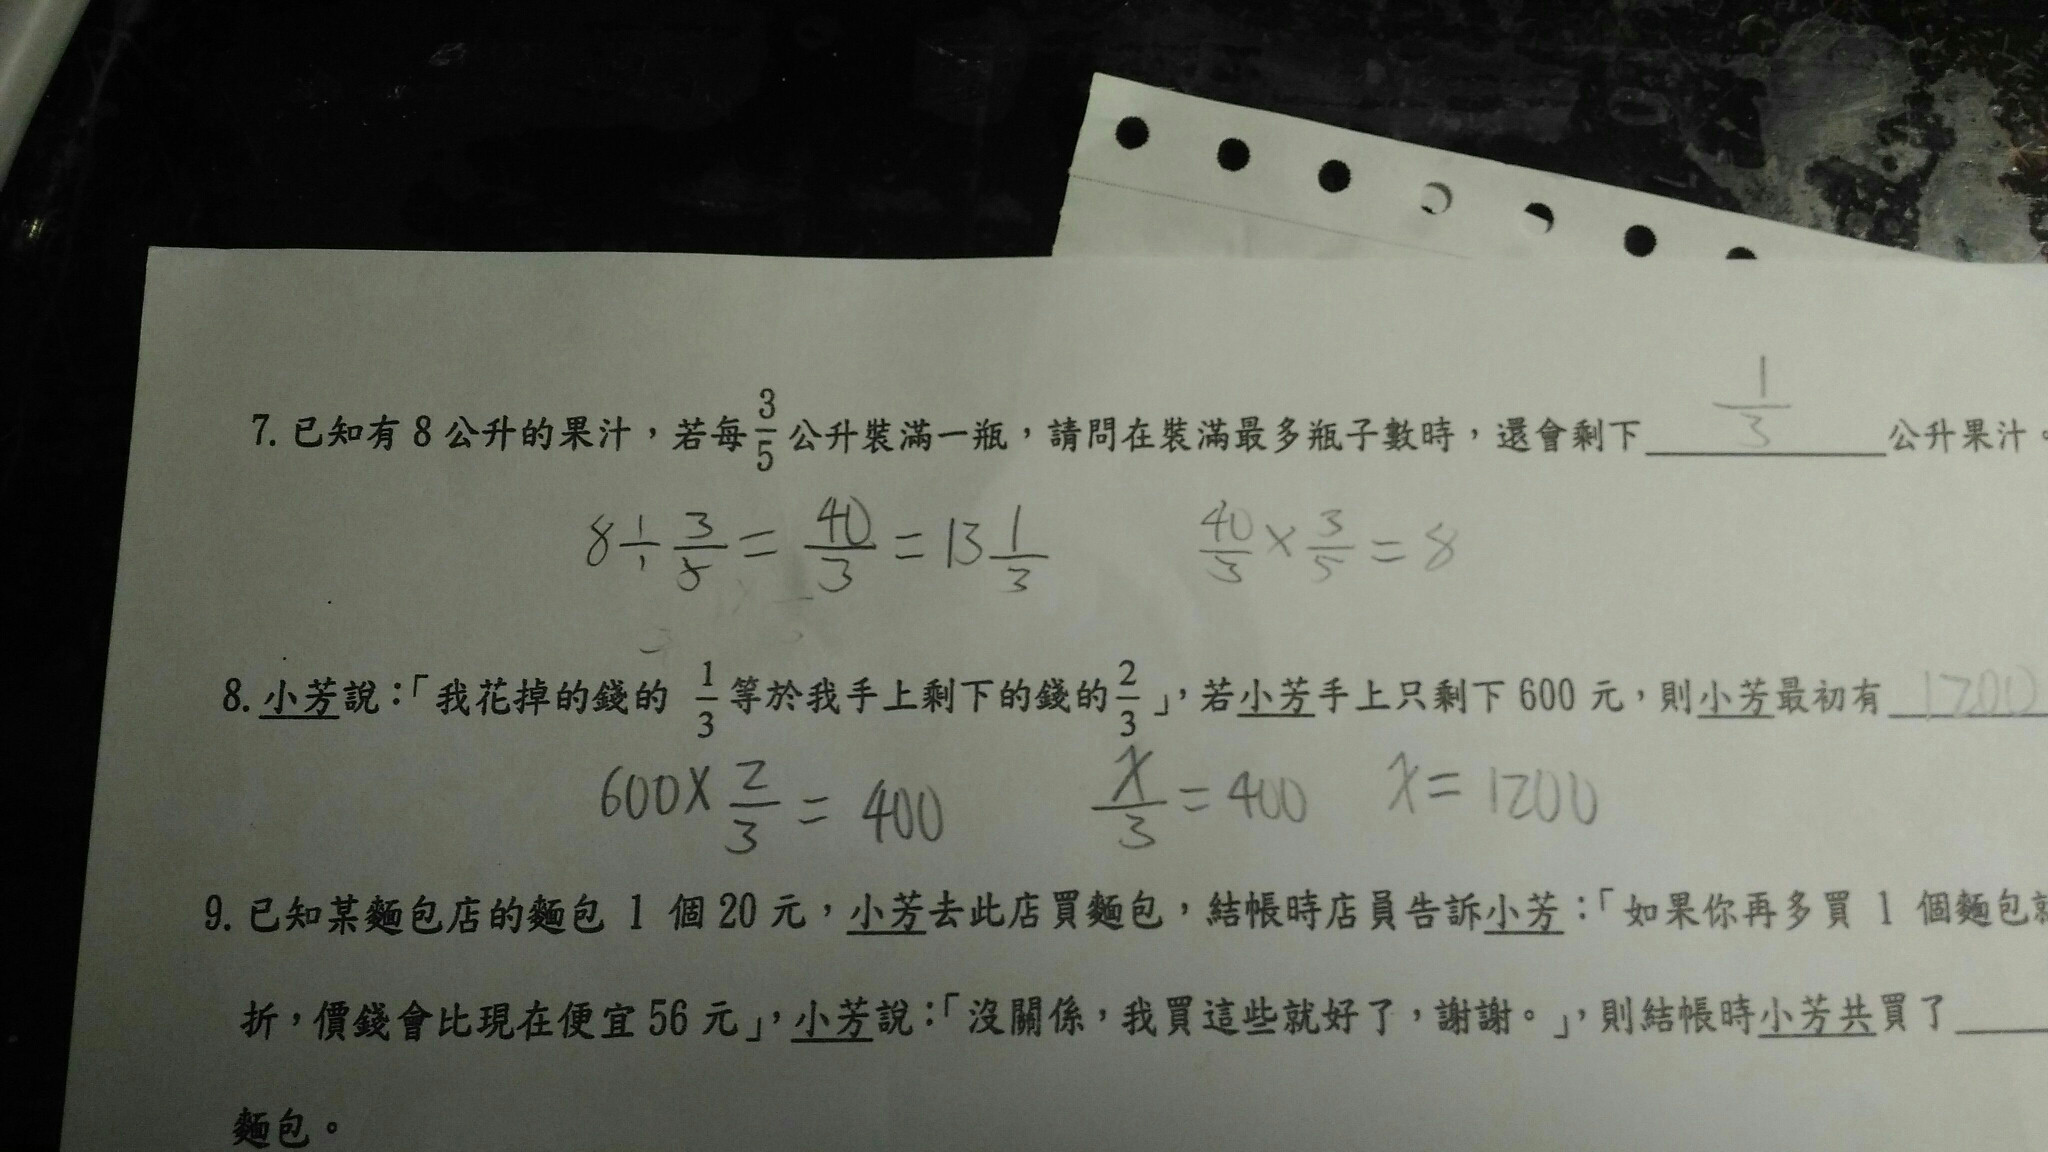 7. 已知有 8 公升的果汁，若每 3/5 公升裝滿一瓶，請問在裝滿最多瓶子數時，還會剩下 1/3 公升果汁。
8 ÷ 3/5 = 40/3 = 13 1/3 40/3 × 3/5 = 8
8. 小芳說：「我花掉的錢的 1/3 等於我手上剩下的錢的 2/3」，若小芳手上只剩下 600 元，則小芳最初有 1200
600 × 2/3 = 400 x/3 = 400 x = 1200
9. 已知某麵包店的麵包 1 個 20 元，小芳去此店買麵包，結帳時店員告訴小芳：「如果你再多買 1 個麵包就
折，價錢會比現在便宜 56 元」，小芳說：「沒關係，我買這些就好了，謝謝。」，則結帳時小芳共買了
麵包。